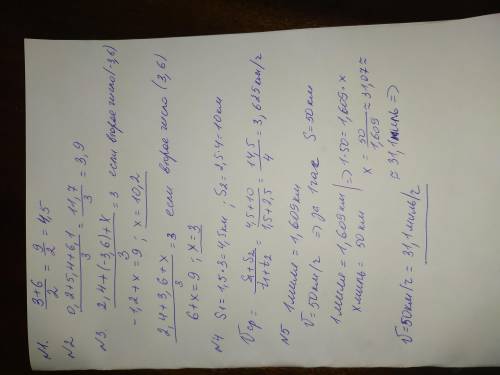 N1. (3+6)/2 = 9/2 = 4,5
N2 (0,2+5,4+6,1)/3 = 11,7/3 = 3,9
N3. (2,4+(-3,6)+x)/3 = 3 если второе число (-3,6)
-1,2+x=9; x=10,2
(2,4+3,6+x)/3 = 3 если второе число (3,6)
6+x=9; x=3
N4 S1=1,5·3=4,5км; S2=2,5·4=10км
Vср= (S1+S2)/(t1+t2) = (4,5+10)/(1,5+2,5) = 14,5/4 = 3,625км/г
N5 1миля=1,609км
V=50км/г => за 1час S=50км
1миля=1,609км | => 1·50=1,609·x
xмиль= 50км x= 50/1,609 ≈31,07≈
≈31,1миль =>
V=50км/г=31,1миль/г